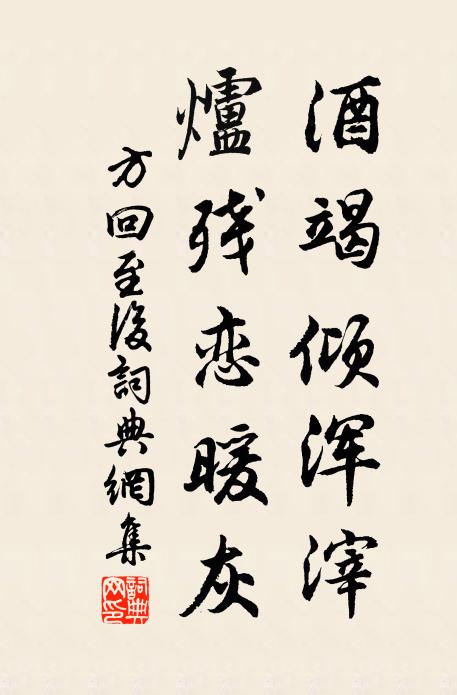 酒竭倾浑滓
爐残恋暖灰
方回至後詞典網集
詞典网印